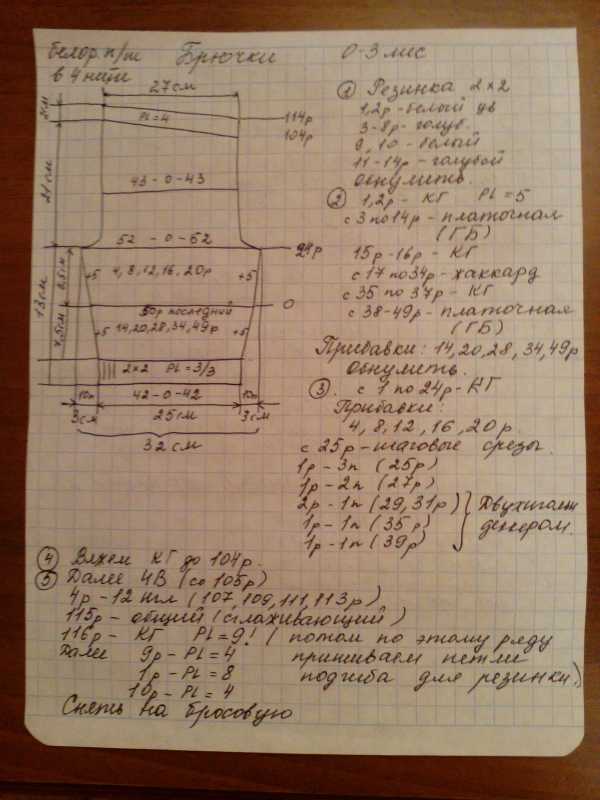 белор. п/ш Брючки 0-3 мес
в 4 нити
27см
2см
PL=4
114р
104р
21см
43-0-43
52-0-52
24р
4, 8, 12, 16, 20р
+5 +5
13см
5,5см
50р последний
0
14,20,28,34,49р
+5 +5
7,5см
2×2 PL=3/3
10п 42-0-42 10п
3см 25см 3см
32см
① Резинка 2×2
1,2р-белый цв
3-8р-голуб.
9,10-белый
11-14р-голубой
Обнулить.
② 1,2р-КГ PL=5
с 3 по 14р-платочная
(ГБ)
15р-16р-КГ
с 17 по 34р-жаккард
с 35 по 37р-КГ
с 38-49р-платочная
(ГБ)
Прибавки: 14,20,28,34,49р
Обнулить.
③ с 1 по 24р-КГ
Прибавки:
4, 8, 12, 16, 20р.
с 25р-шаговые срезы.
1р-3п (25р)
1р-2п (27р)
2р-1п (29,31р)
1р-1п (35р)
1р-1п (39р)
Двухигольн
декером.
④ Вяжем КГ до 104р.
⑤ Далее ЧВ (со 105р)
4р-12 игл (107,109,111,113р)
115р-общий (сглаживающий)
116р-КГ PL=9! (потом по этому ряду
пришиваем петли
подгиба для резинки)
Далее 9р-PL=4
1р-PL=8
10р-PL=4
Снять на бросовую